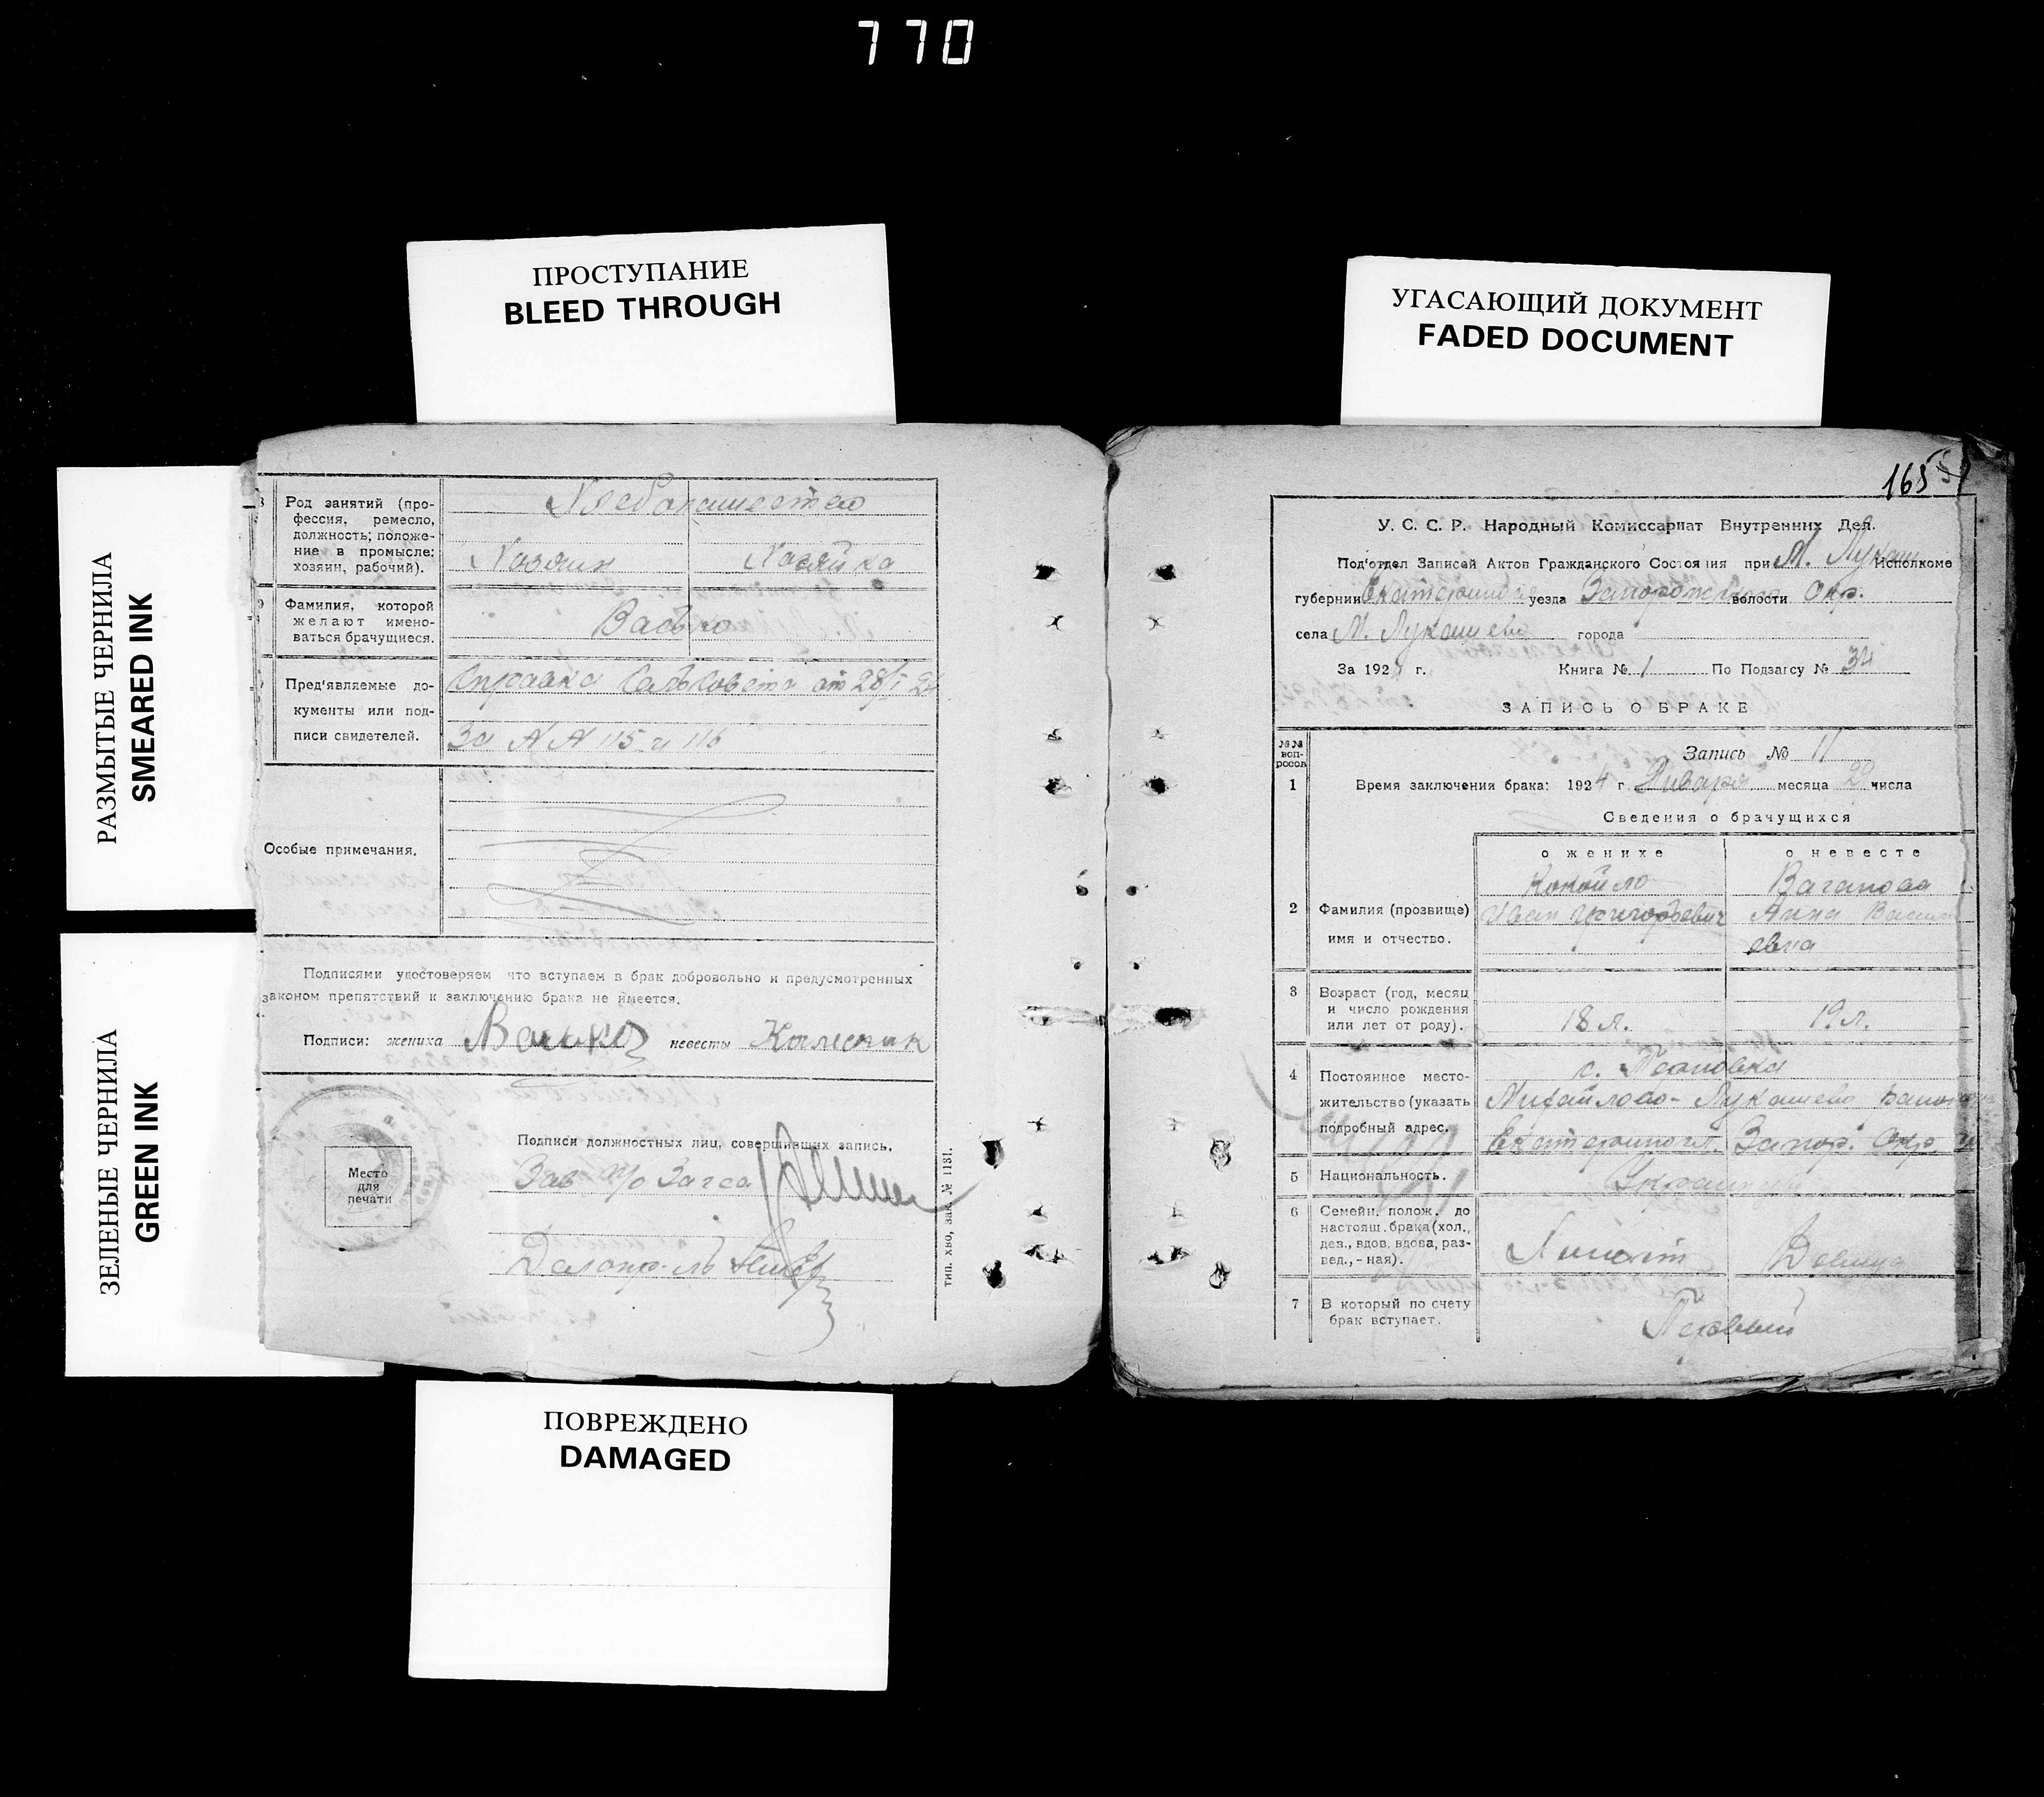 770
ПРОСТУПАНИЕ
BLEED THROUGH
УГАСАЮЩИЙ ДОКУМЕНТ
FADED DOCUMENT
РАЗМЫТЫЕ ЧЕРНИЛА
SMEARED INK
ЗЕЛЕНЫЕ ЧЕРНИЛА
GREEN INK
8 Род занятий (про-
фессия, ремесло,
должность; положе-
ние в промысле:
хозяин, рабочий).
Хлебопашество
Хозяин Хозяйка
9 Фамилия, которой
желают имено-
ваться брачущиеся.
Васько
Пред'являемые до-
кументы или под-
писи свидетелей.
Справка Сельсовета от 28/I 24
За NN 115 и 116
Особые примечания.
Подписями удостоверяем что вступаем в брак добровольно и предусмотренных
законом препятствий к заключению брака не имеется.
Подписи: жениха Васько невесты Колесник
Место
для
печати
Подписи должностных лиц, совершивших запись.
Зав п/о Загса
Делопр-ль
тип. хво, зак. № 1131.
165
У. С. С. Р. Народный Комиссариат Внутренних Дел.
Под'отдел Записей Актов Гражданского Состояния при М. Лукаш Исполкоме
губернии Екатеринос уезда Запорожского волости Окр.
села М. Лукашево города
За 192 г. Книга № 1 По Подзагсу № 34
ЗАПИСЬ О БРАКЕ
№№
воп-
росов
Запись № 11
1 Время заключения брака: 1924 г. Января месяца 29 числа
Сведения о брачущихся
о женихе о невесте
2 Фамилия (прозвище)
имя и отчество.
Кокойло
Иван Григорьевич
Ваганова
Анна Васил
евна
3 Возраст (год, месяц
и число рождения
или лет от роду).
18 л. 19 л.
4 Постоянное место-
жительство (указать
подробный адрес.
с.
Михайлово-Лукашево
Екатериносл. Запор. Окр.
5 Национальность.
6 Семейн. полож. до
настоящ. брака (хол.,
дев., вдов, вдова, раз-
вед., - ная).
Холост Девица
7 В который по счету
брак вступает.
Первый
ПОВРЕЖДЕНО
DAMAGED